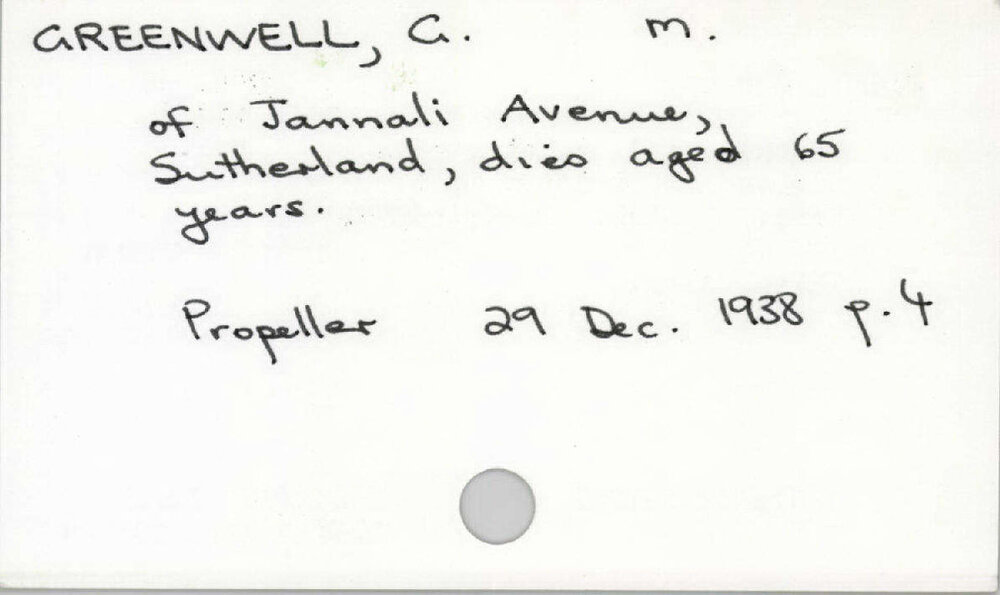 GREENWELL, G. m.
of Jannali Avenue,
Sutherland, dies aged 65
years.
Propeller 29 Dec. 1938 p. 4